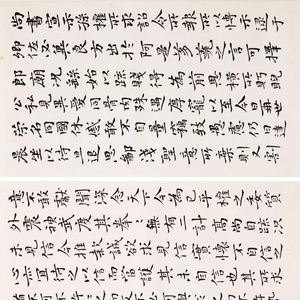 尚書宣示孫權所求詔令所報所以博示逮于
卿佐必冀良方出於阿是芻蕘之言可擇
郎廟況繇始以疏賤得為前恩橫所盼睨
公私見異愛同骨肉殊遇厚寵以至今日再世
榮名同國休慼敢不自量竊致愚慮仍日達
晨坐以待旦退思鄙淺聖意所棄則又割
意不敢獻聞深念天下今為已平權之委質
外震神武度其拳拳無有二計高尚自疏況
未見信今推款誠欲求見信實懷不自信之
心亦宜待之以信而當護其未自信也其所求